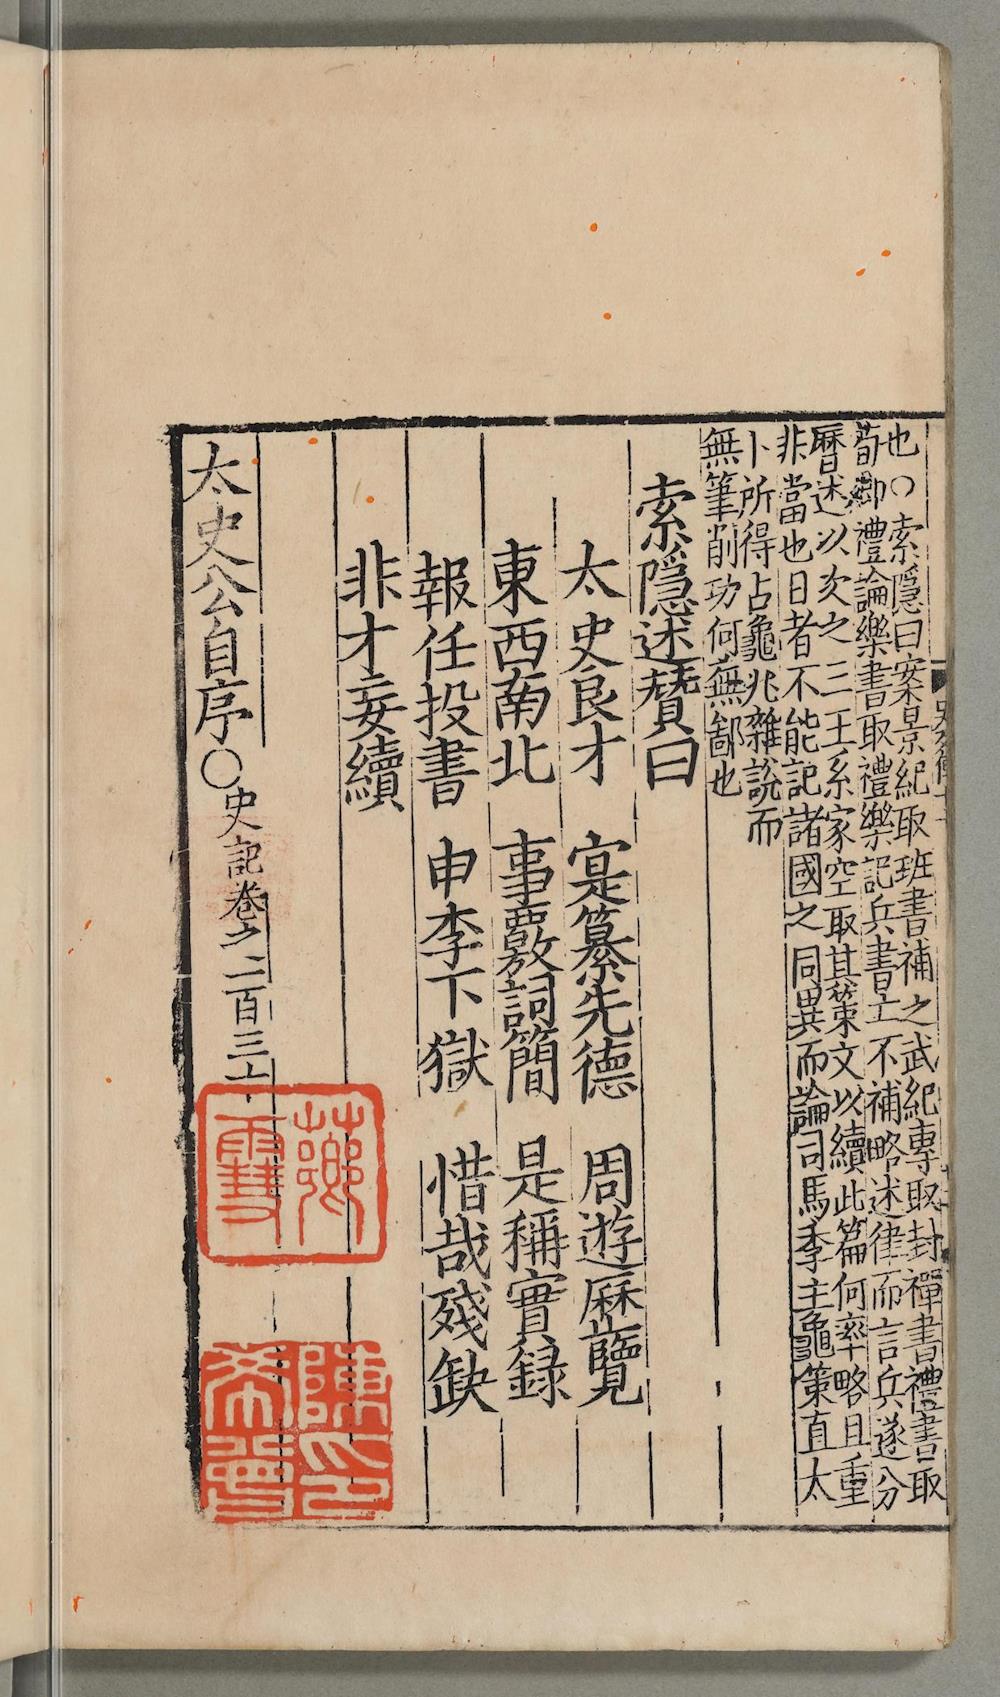 也○索隱曰案景紀取班書補之武紀專取封禪書禮書取
荀卿禮論樂書取禮樂記兵書亡不補略述律而言兵遂分
曆述以次之三王系家空取其策文以續此篇何率略且重
非當也日者不能記諸國之同異而論司馬季主龜策直太
卜所得占龜兆雜說而
無筆削功何蕪鄙也
索隱述贊曰
太史良才　寔纂先德　周遊歷覽
東西南北　事覈詞簡　是稱實錄
報任投書　申李下獄　惜哉殘缺
非才妄續
太史公自序○史記卷之一百三十
薌雪
陳印